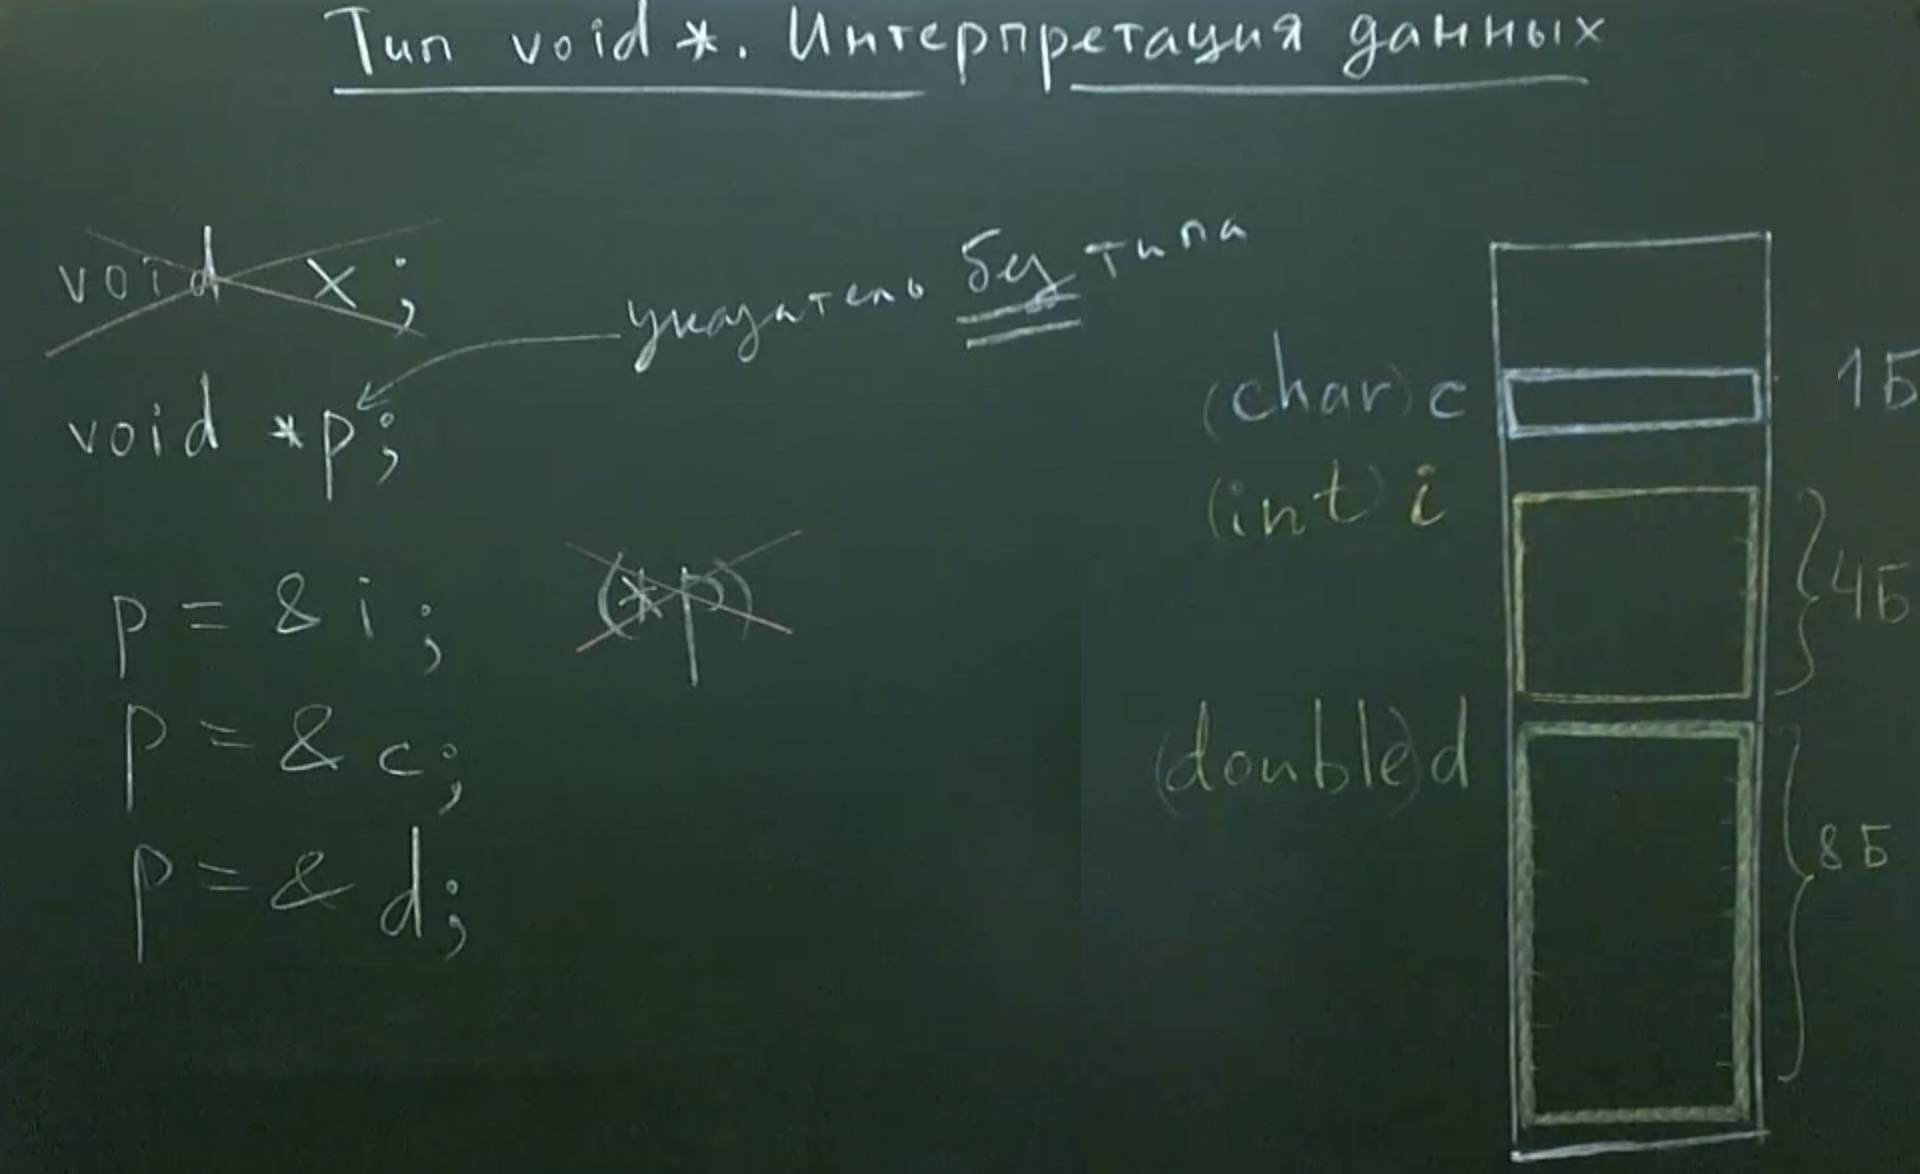 Тип void *. Интерпретация данных
void x;
указатель без типа
void *p;
p = & i;
(*p)
p = & c;
p = & d;
(char) c
1Б
(int) i
4Б
(double) d
8Б